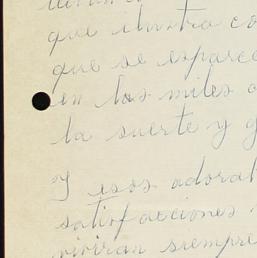 que ilustra co
que se esparce
en los miles d
la suerte y g
Y esos adorab
satisfacciones
vivirán siempre